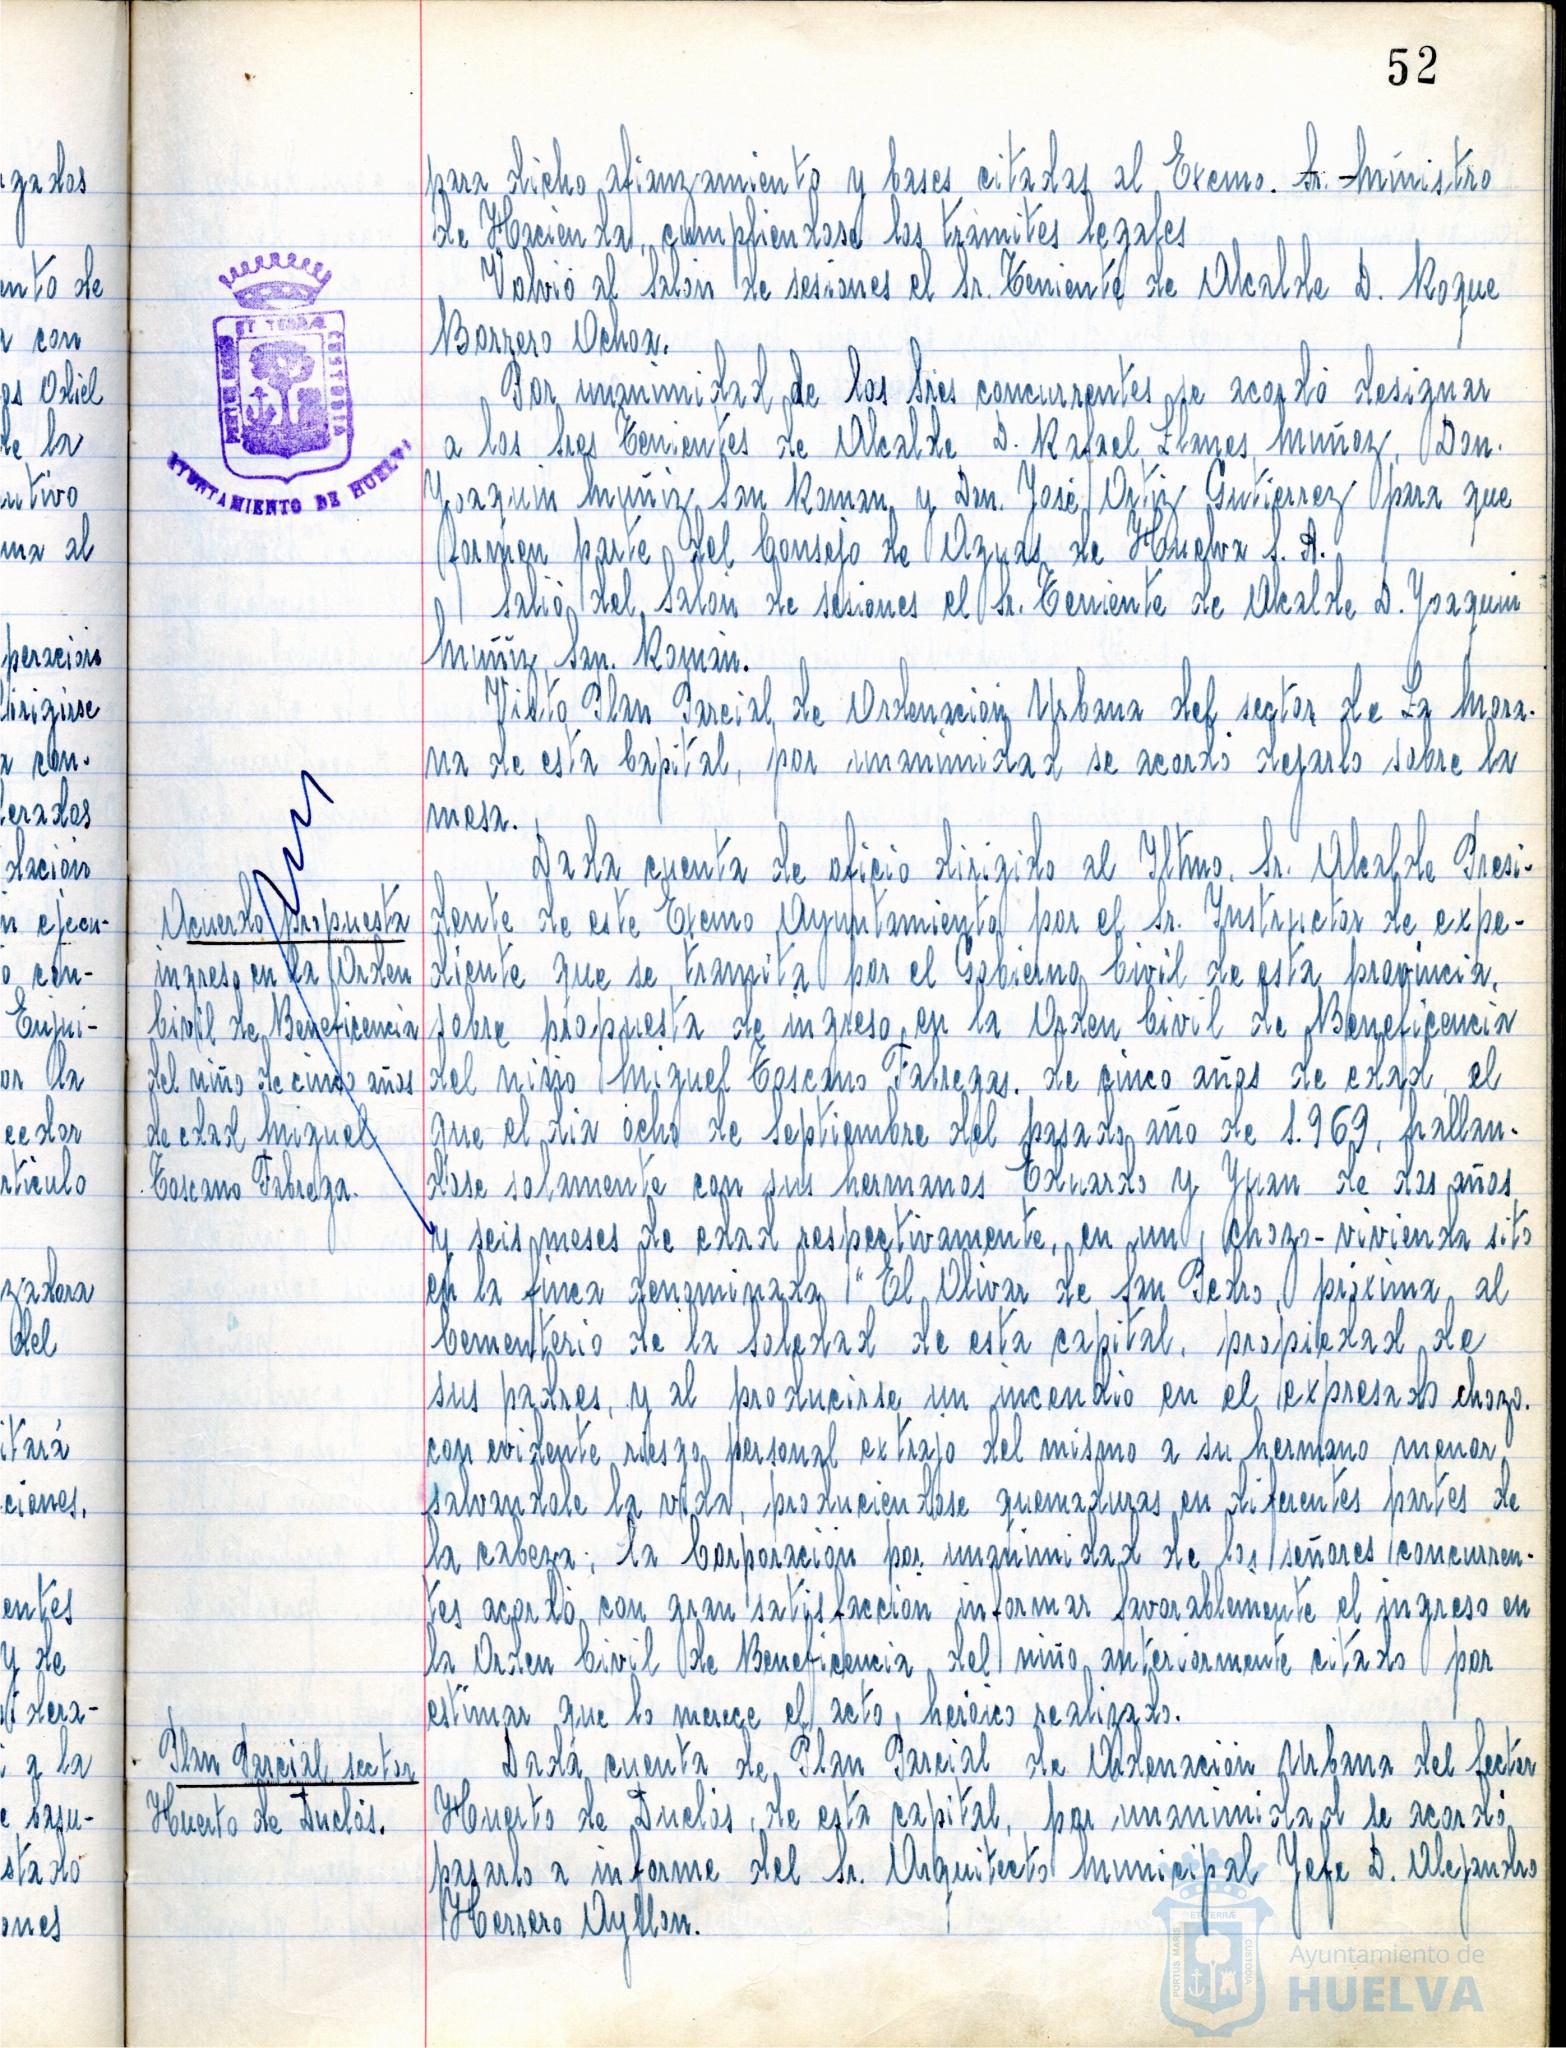 52
para dicho afianzamiento y bases citadas al Excmo. Sr. Ministro
de Hacienda, cumpliendose los trámites legales
Volvió al Salón de sesiones el Sr. Teniente de Alcalde D. Roque
Borrero Ochoa.
Por unanimidad de los Sres concurrentes se acordó designar
a los Sres Tenientes de Alcalde D. Rafael Llanes Muñoz, Don.
Joaquin Muñiz San Roman y Don. José Ortiz Gutierrez para que
formen parte del Consejo de Aguas de Huelva S. A.
Salió del Salón de sesiones el Sr. Teniente de Alcalde D. Joaquin
Muñiz San. Román.
Visto Plan Parcial de Ordenación Urbana del sector de La Mora-
na de esta Capital, por unanimidad se acordó dejarlo sobre la
mesa.
Dada cuenta de oficio dirigido al Iltmo. Sr. Alcalde Presi-
dente de este Excmo Ayuntamiento por el Sr. Instructor de expe-
diente que se tramita por el Gobierno Civil de esta provincia,
sobre propuesta de ingreso en la Orden Civil de Beneficencia
del niño Miguel Toscano Fabregas. de cinco años de edad, el
que el dia ocho de Septiembre del pasado año de 1.969, hallan-
dose solamente con sus hermanos Eduardo y Juan de dos años
y seis meses de edad respectivamente, en un chozo-vivienda sito
en la finca denominada "El Olivar de San Pedro, próxima al
Cementerio de la Soledad de esta capital, propiedad de
sus padres, y al producirse un incendio en el expresado chozo.
con evidente riesgo personal extrajo del mismo a su hermano menor
salvandole la vida, produciendose quemaduras en diferentes partes de
la cabeza; la Corporación por unanimidad de los señores concurren-
tes acordó con gran satisfacción informar favorablemente el ingreso en
la Orden Civil de Beneficencia del niño anteriormente citado por
estimar que lo merece el acto heróico realizado.
Dada cuenta de Plan Parcial de Ordenación Urbana del Sector
Huerto de Duclós, de esta capital, por unanimidad se acordó
pasarlo a informe del Sr. Arquitecto Municipal Jefe D. Alejandro
Herrero Ayllon.
Acuerdo propuesta
ingreso en la Orden
Civil de Beneficencia
del niño de cinco años
de edad Miguel
Toscano Fabrega.
Plan Parcial sector
Huerto de Duclós.
ET TERRÆ
CUSTODIA
AYUNTAMIENTO DE HUELVA
gados
ento de
a con
os Odiel
de la
entivo
ma al
peración
dirigirse
a con-
derados
dación
n ejecu-
o con-
Enjui-
or la
eedor
rticulo
zadora
del
itará
ciones.
entes
y de
idera-
i a la
e basu-
stado
ones
PORTUS MARIS
ET TERRÆ
CUSTODIA
Ayuntamiento de
HUELVA